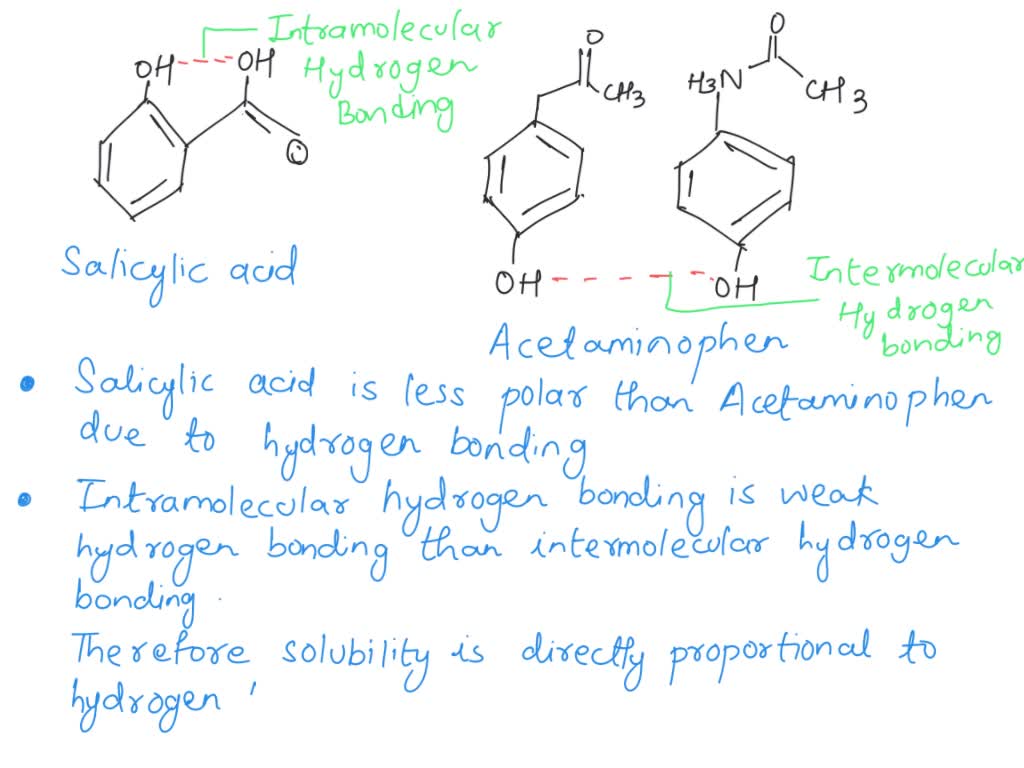 Intramolecular
Hydrogen
Bonding
OH
OH
O
Salicylic acid
O
CH3
OH
O
H3N
CH3
OH
Intermolecular
Hydrogen
bonding
Acetaminophen
• Salicylic acid is less polar than Acetaminophen
due to hydrogen bonding
• Intramolecular hydrogen bonding is weak
hydrogen bonding than intermolecular hydrogen
bonding.
Therefore solubility is directly proportional to
hydrogen '